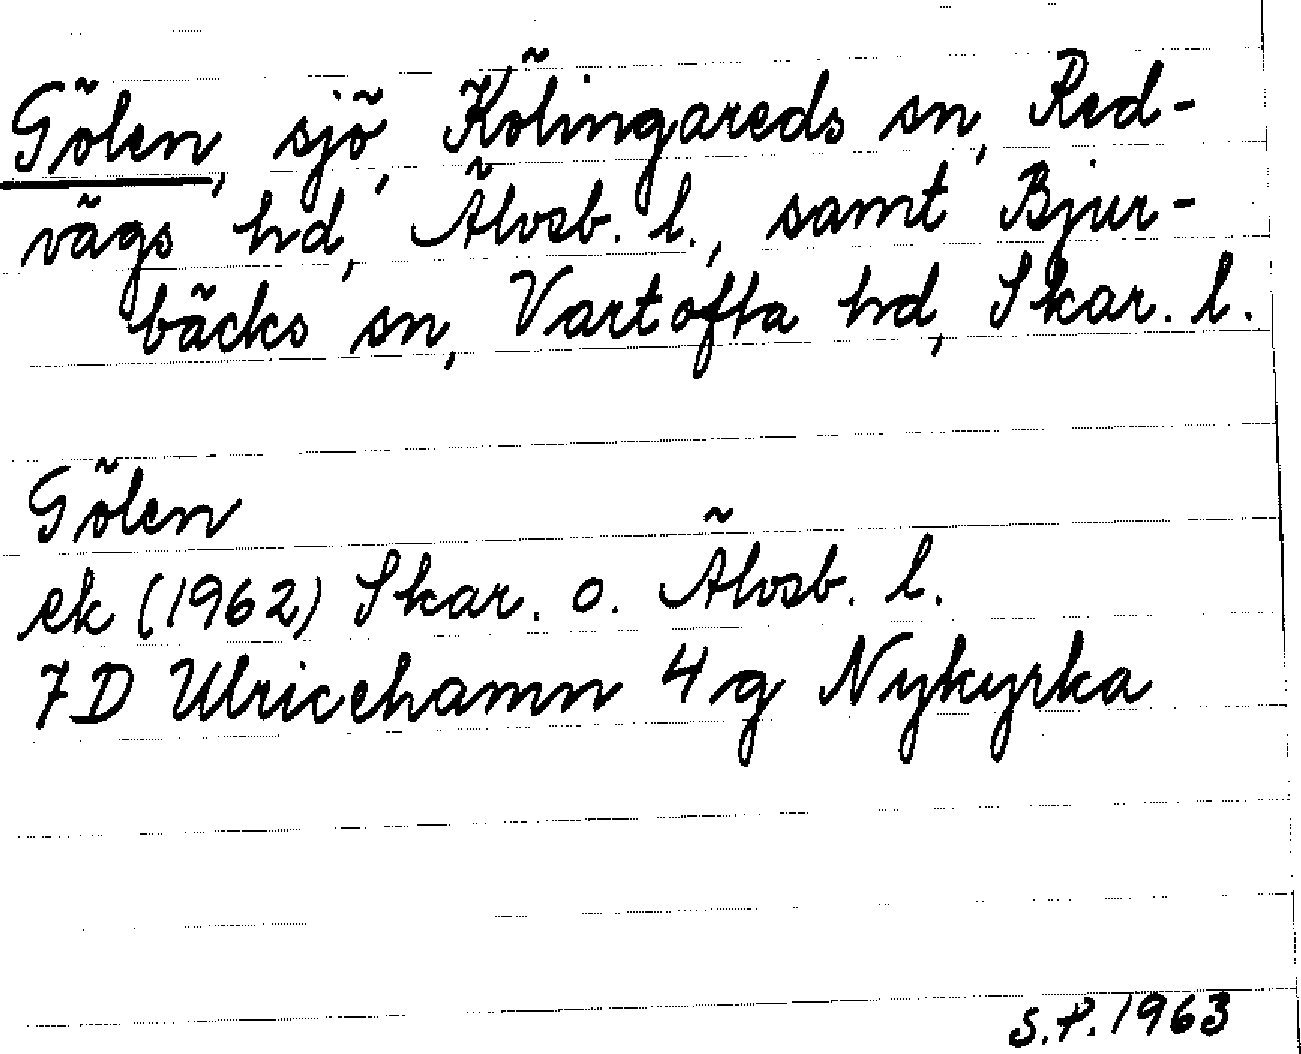 Gölen, sjö, Kölingareds sn, Red-
vägs hd, Älvsb. l., samt Bjur-
bäcks sn, Vartofta hd, Skar. l.
Gölen
ek (1962) Skar. o. Älvsb. l.
7D Ulricehamn 4g Nykyrka
S.P. 1963